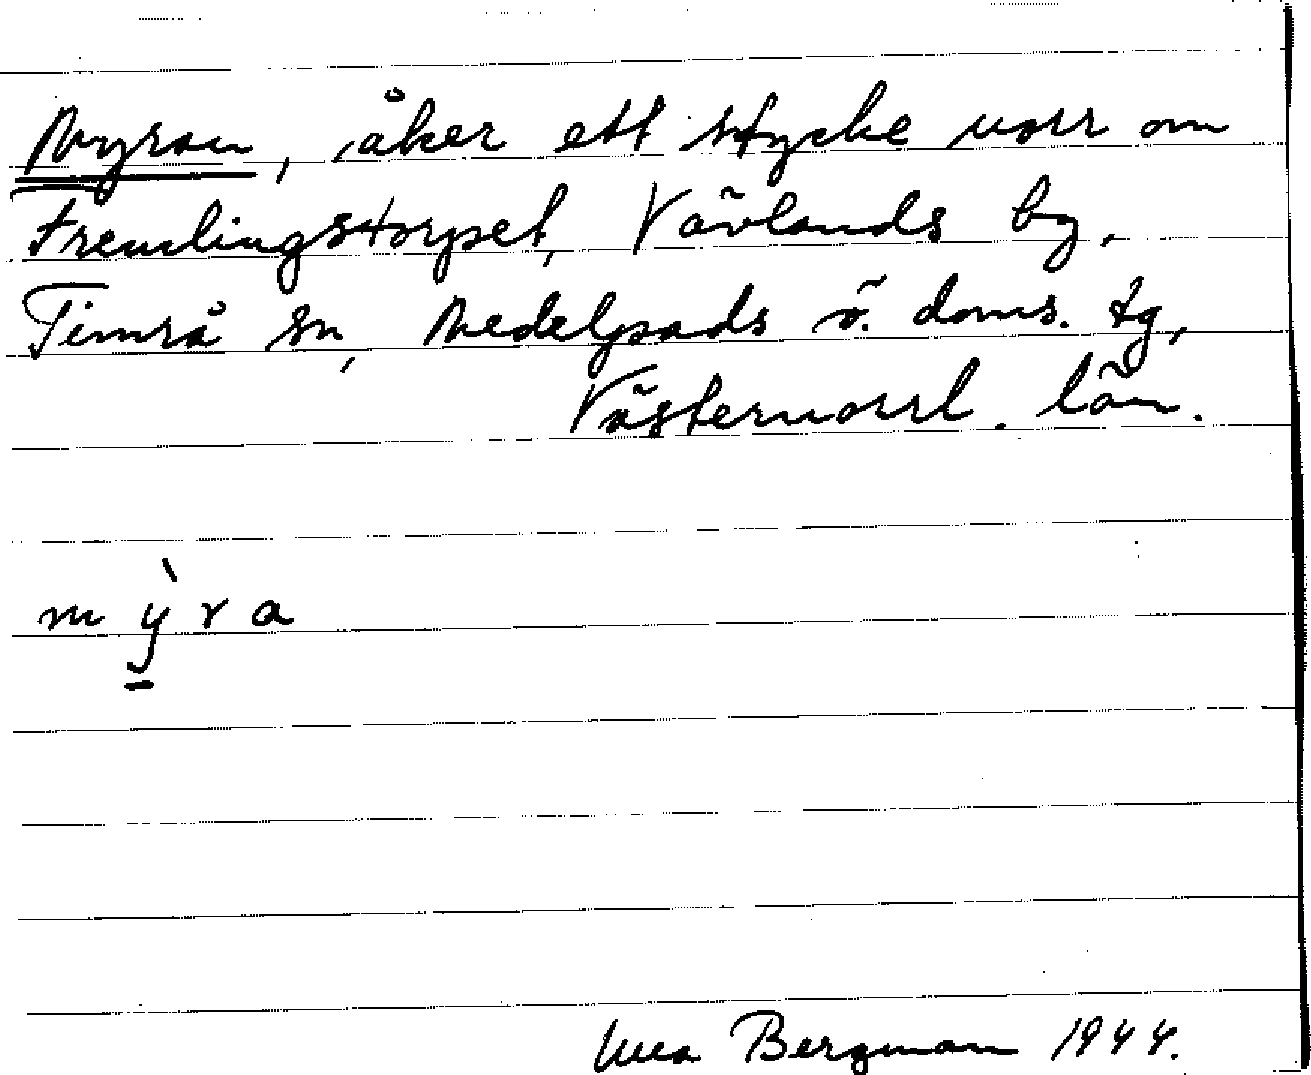 Myran, åker ett stycke norr om
Fremlingstorpet, Vävlands by,
Timrå sn, Medelpads ö. doms. tg,
Västernorrl. län.
m ỳ̱ r a
Bergman 1944.